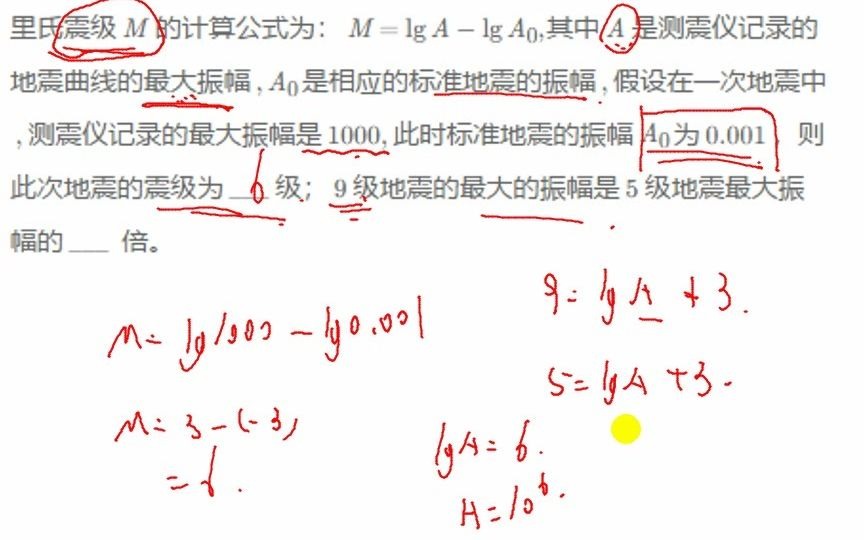 里氏震级 M 的计算公式为： M = lg A − lg A₀,其中 A 是测震仪记录的
地震曲线的最大振幅 , A₀ 是相应的标准地震的振幅 , 假设在一次地震中
, 测震仪记录的最大振幅是 1000, 此时标准地震的振幅 A₀ 为 0.001 则
此次地震的震级为 __6 级； 9 级地震的最大的振幅是 5 级地震最大振
幅的 ___ 倍。
9 = lg A + 3.
M = lg1000 − lg0.001
5 = lgA + 3.
M = 3 − (−3)
lgA = 6.
= 6.
A = 10⁶.